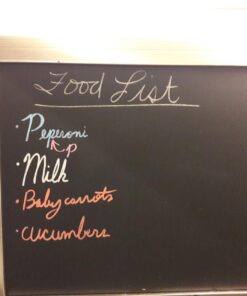 Food List
· Peperoni
p
· Milk
· Baby carrots
· cucumbers